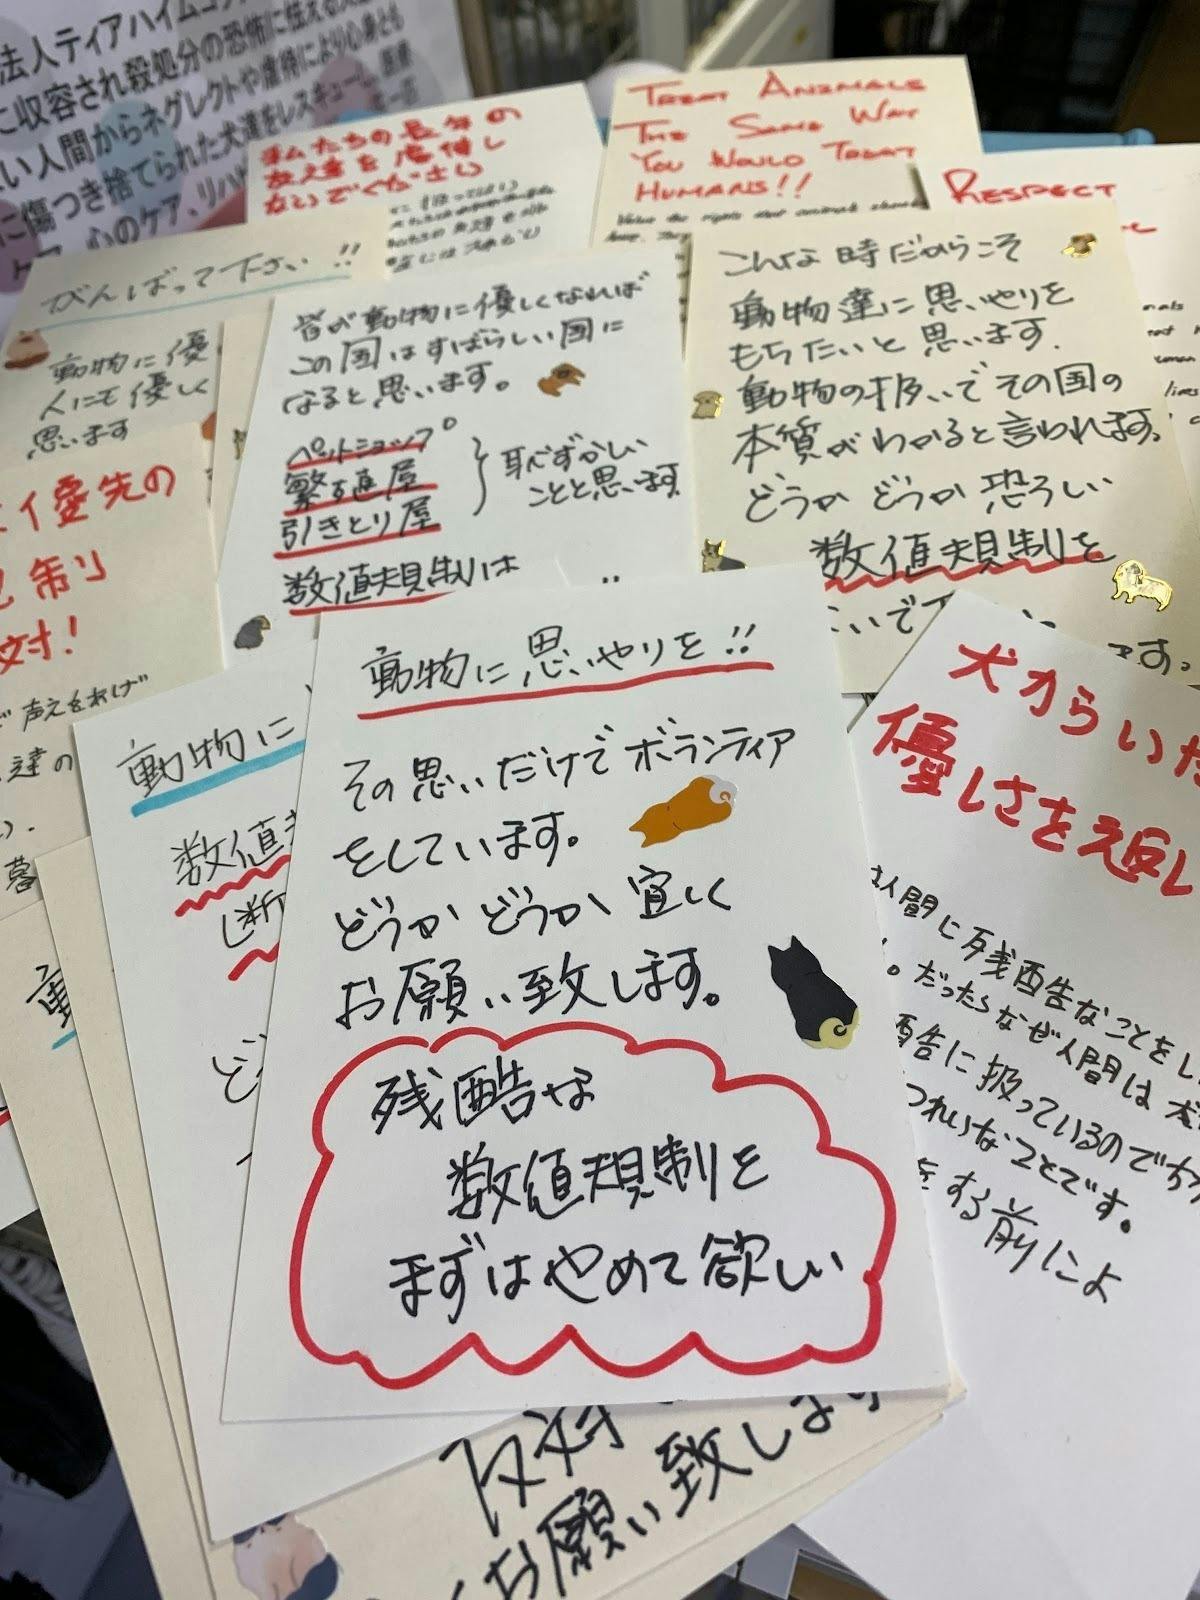 法人ティアハイムコ
に収容され殺処分の恐怖に怯える
い人間からネグレクトや虐待により心身とも
に傷つき捨てられた犬達をレスキューし、医療
心のケア、リハ
私たちの長年の
友達を虐待し
ないでください
TREAT ANIMALS
THE SAME WAY
YOU WOULD TREAT
HUMANS!!
Value the rights that animals
RESPECT
がんばって下さい!!
動物に優
人にも優しく
思います
皆が動物に優しくなれば
この国はすばらしい国に
なると思います。
ペットショップ
繁殖屋
引きとり屋
恥ずかしい
ことと思います
数値規制は
こんな時だからこそ
動物達に思いやりを
もちたいと思います.
動物の扱いでその国の
本質がわかると言われます。
どうか どうか 恐ろしい
数値規制を
いで下
ます。
優先の
制
対!
声をあげ
達の
動物に
数値
断
動物に思いやりを!!
その思いだけでボランティア
をしています。
どうか どうか 宜しく
お願い致します。
残酷な
数値規制を
まずはやめて欲しい
犬からいた
優しさを返し
人間に残酷なことをし
。だったらなぜ人間は犬
酷に扱っているのです
つれいなことです。
をする前によ
反対
お願い致します